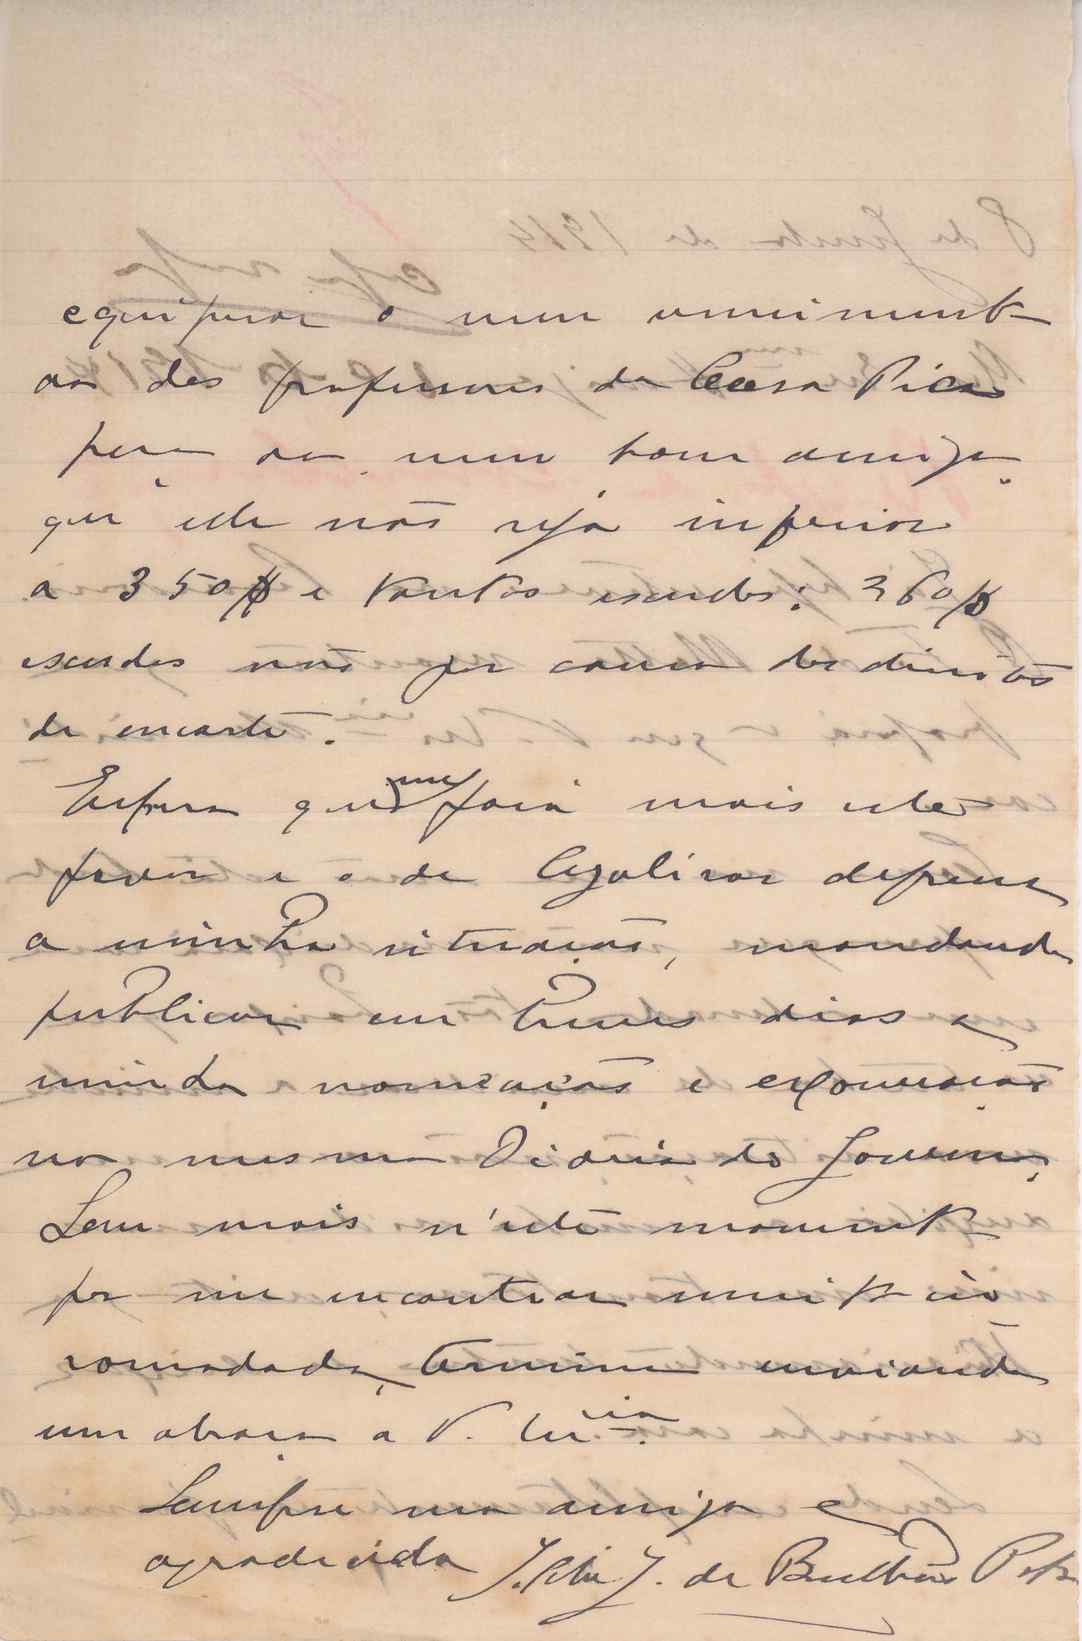 equiparar o meu vencimento
ao dos professores da Casa Pia
para ao meu bom amigo
que este não seja inferior
a 350$ e tantos escudos; 360$
escudos não por causa dos direitos
de encarte.
Espera que me fará mais este
favor e o de legalisar depressa
a minha situação, mandando
publicar em breves dias a
minha nomeação e exoneração
no mesmo Diario do Governo,
Sem mais n'este momento
por me encontrar muito in
comodada, termina enviando
um abraço a V. Ex.cia
Sempre sua amiga e
agradecida J. de Bulhão Pato